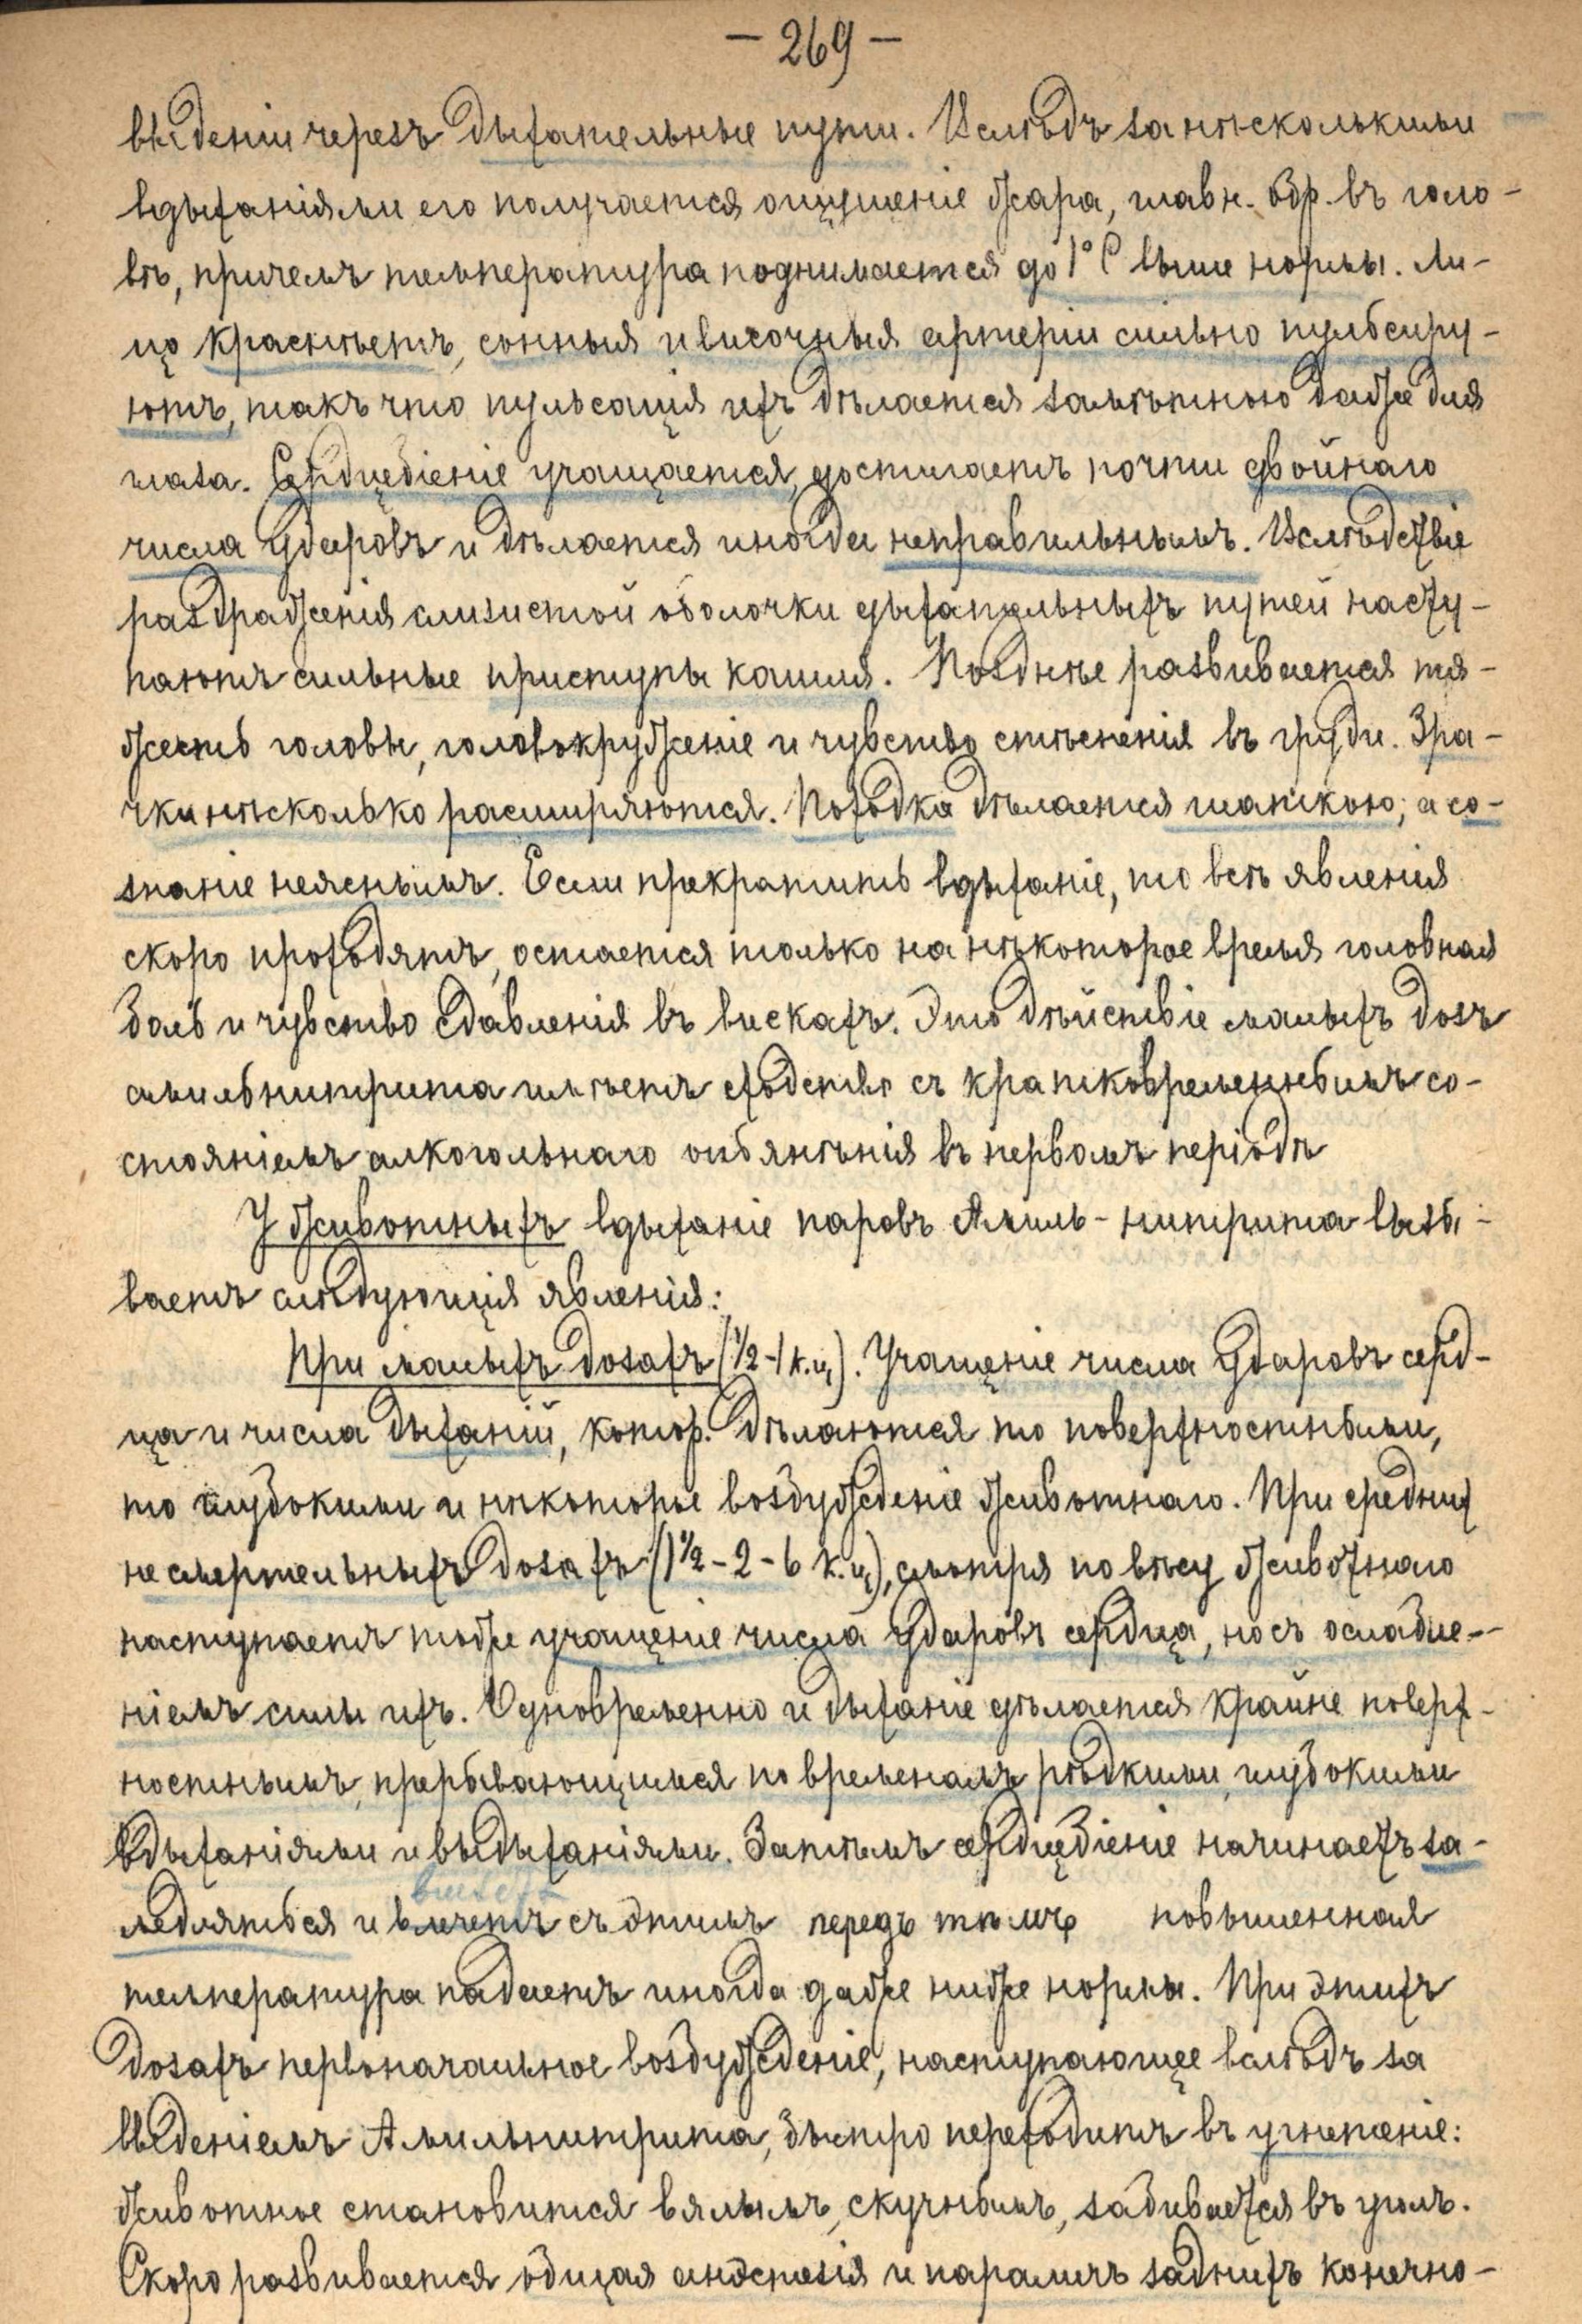 — 269 —
введеніи черезъ дыхательные пути. Вслѣдъ за нѣсколькими
вдыханіями его получается ощущеніе жара, главн. обр. въ голо-
вѣ, причемъ температура поднимается до 1° С выше нормы. Ли-
цо краснѣетъ, сонныя и височныя артеріи сильно пульсиру-
ютъ, такъ что пульсація ихъ дѣлается замѣтною даже для
глаза. Сердцебіеніе учащается, достигаетъ почти двойнаго
числа ударовъ и дѣлается иногда неправильнымъ. Вслѣдствіе
раздраженія слизистой оболочки дыхательныхъ путей насту-
паютъ сильные приступы кашля. Позднѣе развивается тя-
жесть головы, головокруженіе и чувство стѣсненія въ груди. Зра-
чки нѣсколько расширяются. Походка дѣлается шаткою, а со-
знаніе неяснымъ. Если прекратить вдыханіе, то всѣ явленія
скоро проходятъ, остается только на нѣкоторое время головная
боль и чувство сдавленія въ вискахъ. Это дѣйствіе малыхъ дозъ
амильнитрита имѣетъ сходство съ кратковременнымъ со-
стояніемъ алкогольнаго опьянѣнія въ первомъ періодѣ
У животныхъ вдыханіе паровъ Амиль-нитрита вызы-
ваетъ слѣдующія явленія:
При малыхъ дозахъ (1/2-1 к.ц.). Учащеніе числа ударовъ серд-
ца и числа дыханій, котор. дѣлаются то поверхностными,
то глубокими и нѣкоторые возбужденіе животнаго. При средних
не смертельныхъ дозахъ (1 1/2 - 2 - 6 к.ц.), смотря по вѣсу животнаго
наступаетъ тоже учащеніе числа ударовъ сердца, но съ ослабле-
ніемъ силы ихъ. Одновременно и дыханіе дѣлается крайне поверх-
ностнымъ, прерывающимся по временамъ рѣдкими, глубокими
вдыханіями и выдыханіями. Затѣмъ сердцебіеніе начинаетъ за-
медляться и влечетъ съ этимъ передъ тѣмъ повышенная
температура падаетъ иногда даже ниже нормы. При этихъ
дозахъ первоначальное возбужденіе, наступающее вслѣдъ за
введеніемъ Амильнитрита, быстро переходитъ въ угнетеніе:
животное становится вялымъ, скучнымъ, забивается въ уголъ.
Скоро развивается общая анэстезія и параличъ заднихъ конечно-